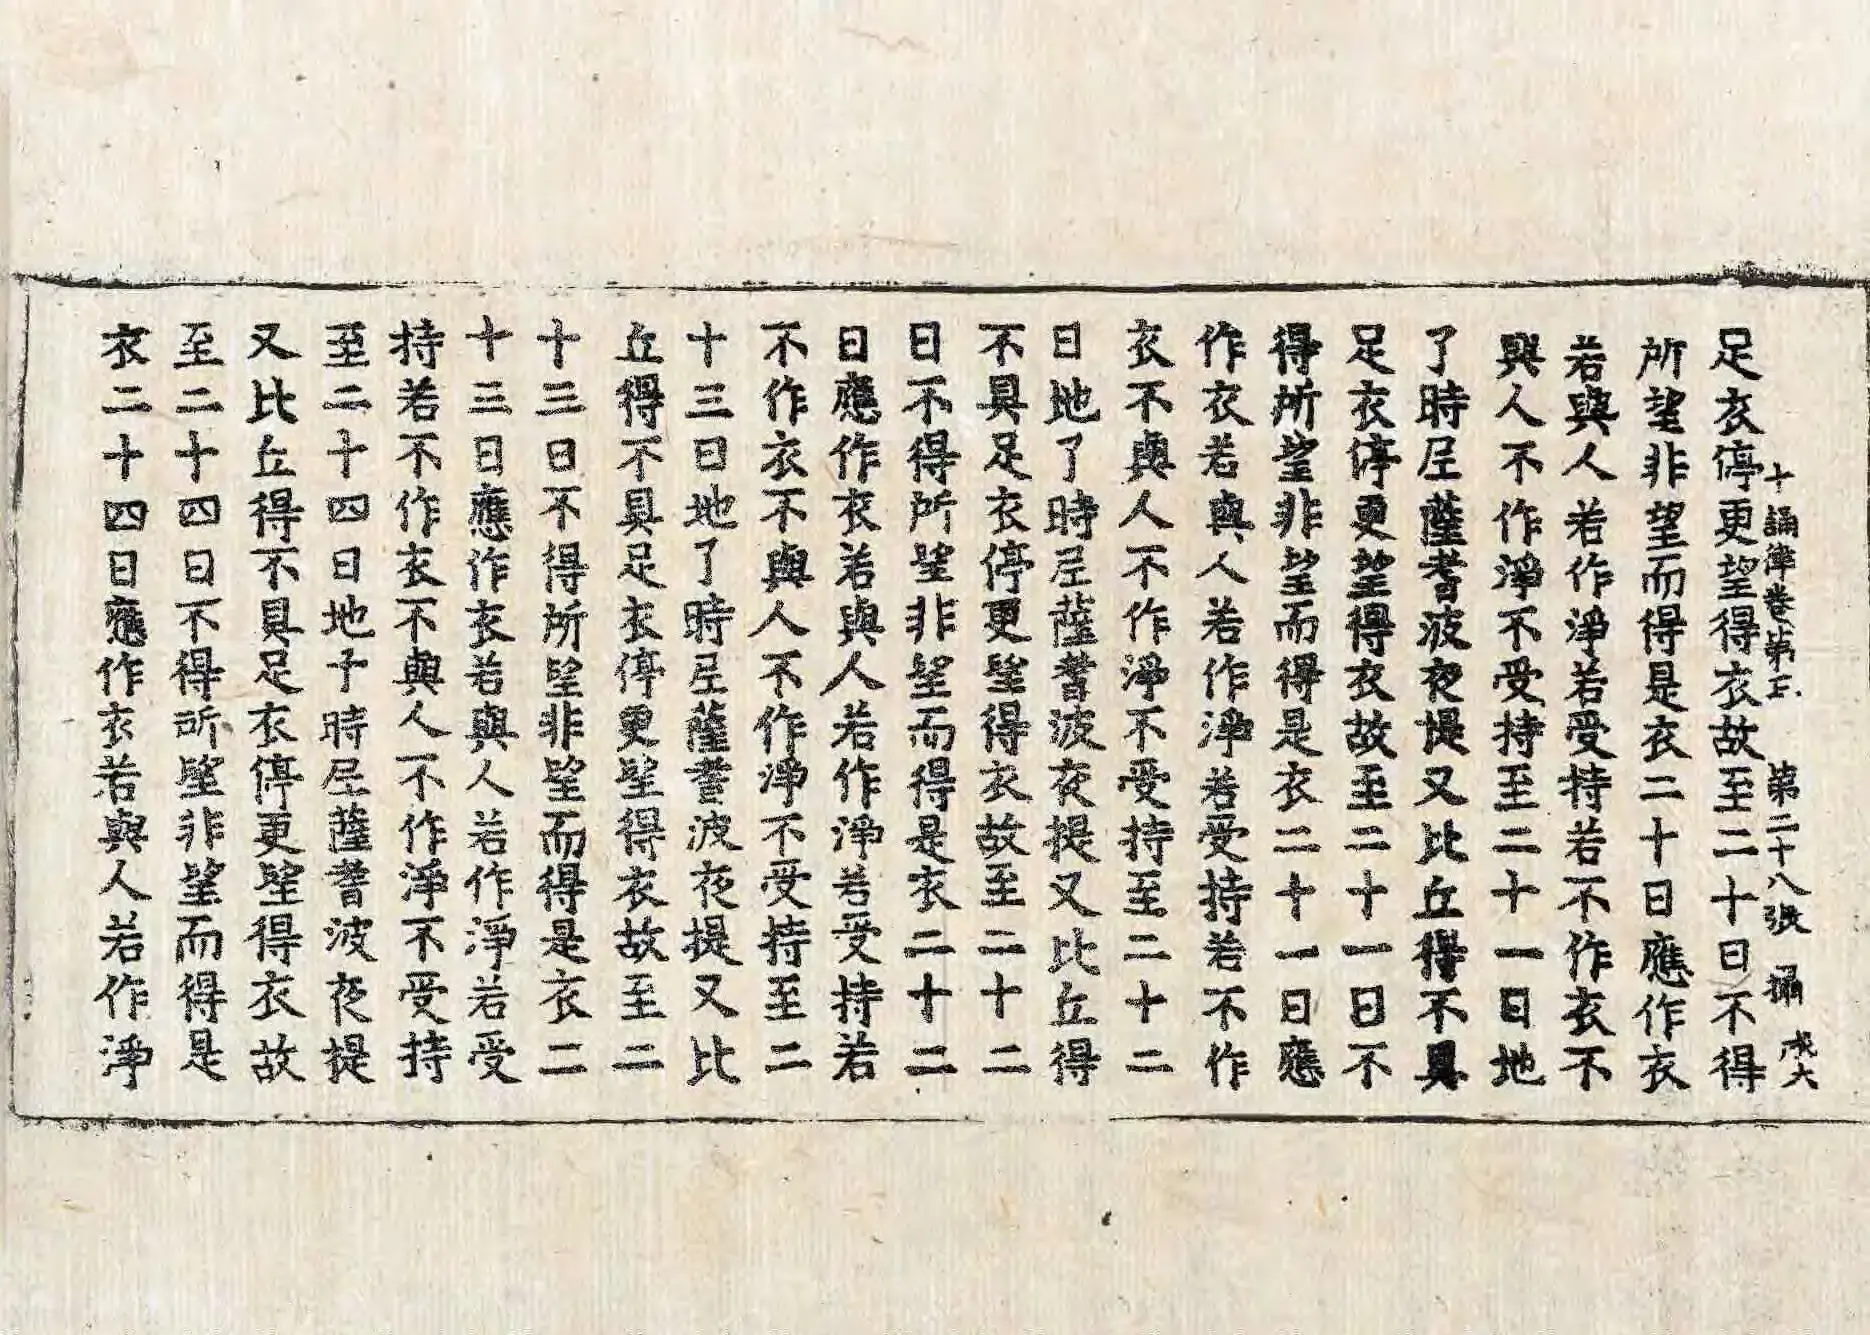 十誦律卷第五 第二十八張 攝 戍六
足衣停更望得衣故至二十日不得
所望非望而得是衣二十日應作衣
若與人若作淨若受持若不作衣不
與人不作淨不受持至二十一日地
了時尼薩耆波夜提又比丘得不具
足衣停更望得衣故至二十一日不
得所望非望而得是衣二十一日應
作衣若與人若作淨若受持若不作
衣不與人不作淨不受持至二十二
日地了時尼薩耆波夜提又比丘得
不具足衣停更望得衣故至二十二
日不得所望非望而得是衣二十二
日應作衣若與人若作淨若受持若
不作衣不與人不作淨不受持至二
十三日地了時尼薩耆波夜提又比
丘得不具足衣停更望得衣故至二
十三日不得所望非望而得是衣二
十三日應作衣若與人若作淨若受
持若不作衣不與人不作淨不受持
至二十四日地了時尼薩耆波夜提
又比丘得不具足衣停更望得衣故
至二十四日不得所望非望而得是
衣二十四日應作衣若與人若作淨